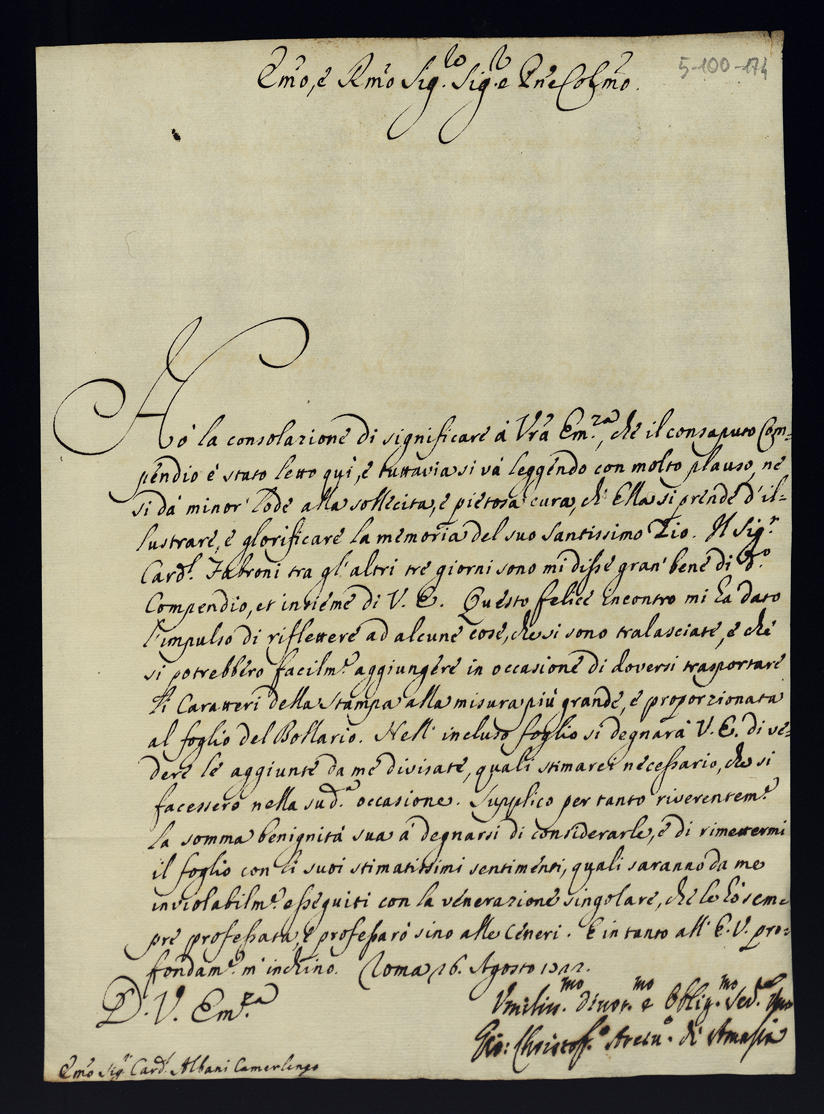 Emo, e Rmo Sig.re Sig.r e Pne Colmo.
5-100-174
Hò la consolazione di significare à Vrà Em.za, che il consaputo Com=
pendio è stato letto quì, e tuttavia si và leggendo con molto plauso, nè
si dà minor' lode alla sollecita, e pietosa cura, ch' Ella si prende d'il=
lustrare, e glorificare la memoria del suo Santissimo Zio. Il Sig.r
Card.l Fabroni tra gl' altri trè giorni sono mi disse gran' bene di d.o
Compendio, et insieme di V. E. Questo felice incontro mi hà dato
l'impulso di riflettere ad alcune cose, che si sono tralasciate, e che
si potrebbero facilm.e aggiungere in occasione di doversi trasportare
li Caratteri della stampa alla misura più grande, e proporzionata
al foglio del Bollario. Nell' incluso foglio si degnarà V. E. di ve=
dere le aggiunte da me divisate, quali stimarei necessario, che si
facessero nella sud.a occasione. Supplico per tanto riverentem.e
la somma benignità sua à degnarsi di considerarle, e di rimettermi
il foglio con li suoi stimatissimi sentimenti, quali saranno da me
inviolabilm.e esseguiti con la venerazione singolare, che le hò sem=
pre professata, e professarò sino alle ceneri. E in tanto all' E. V. pro=
fondam.e m' inchino. Roma 26. Agosto
D. V. Em.za
Umiliss.mo divot.mo e Oblig.mo Ser.
Gio: Christof.o Arciv.o di Amasia
Emo Sig.r Card.l Albani Camerlengo